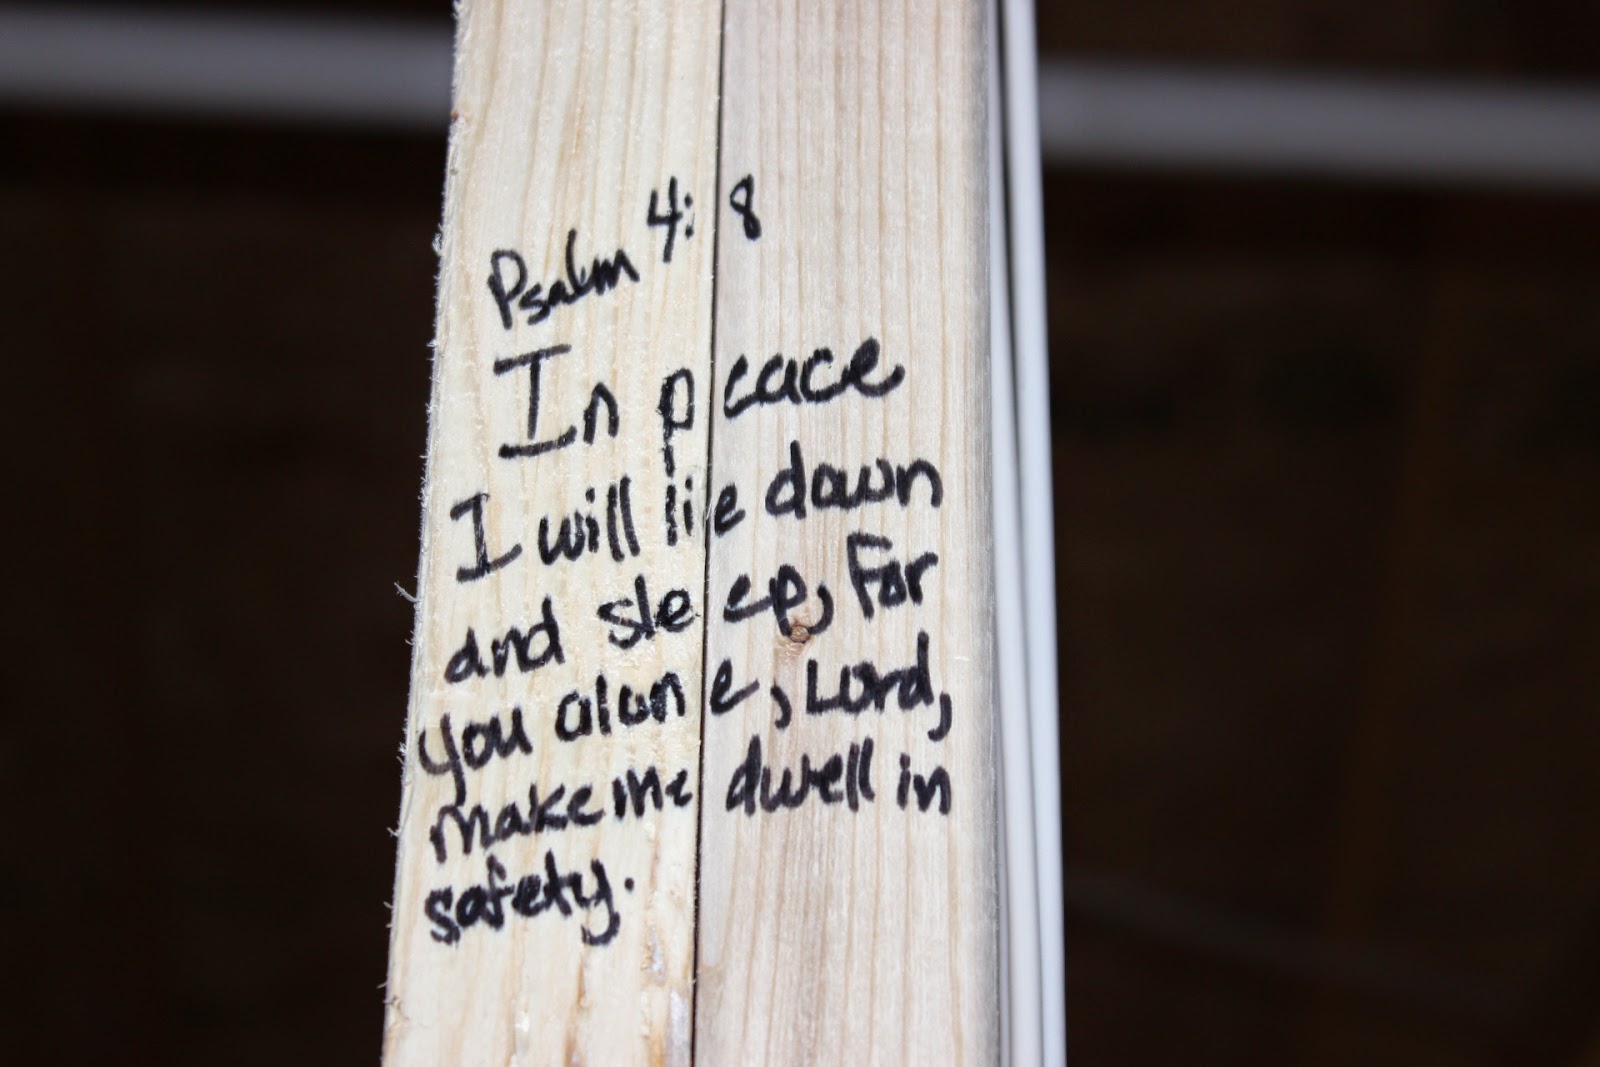 Psalm 4:8
In peace
I will lie down
and sleep, for
you alone, Lord,
make me dwell in
safety.